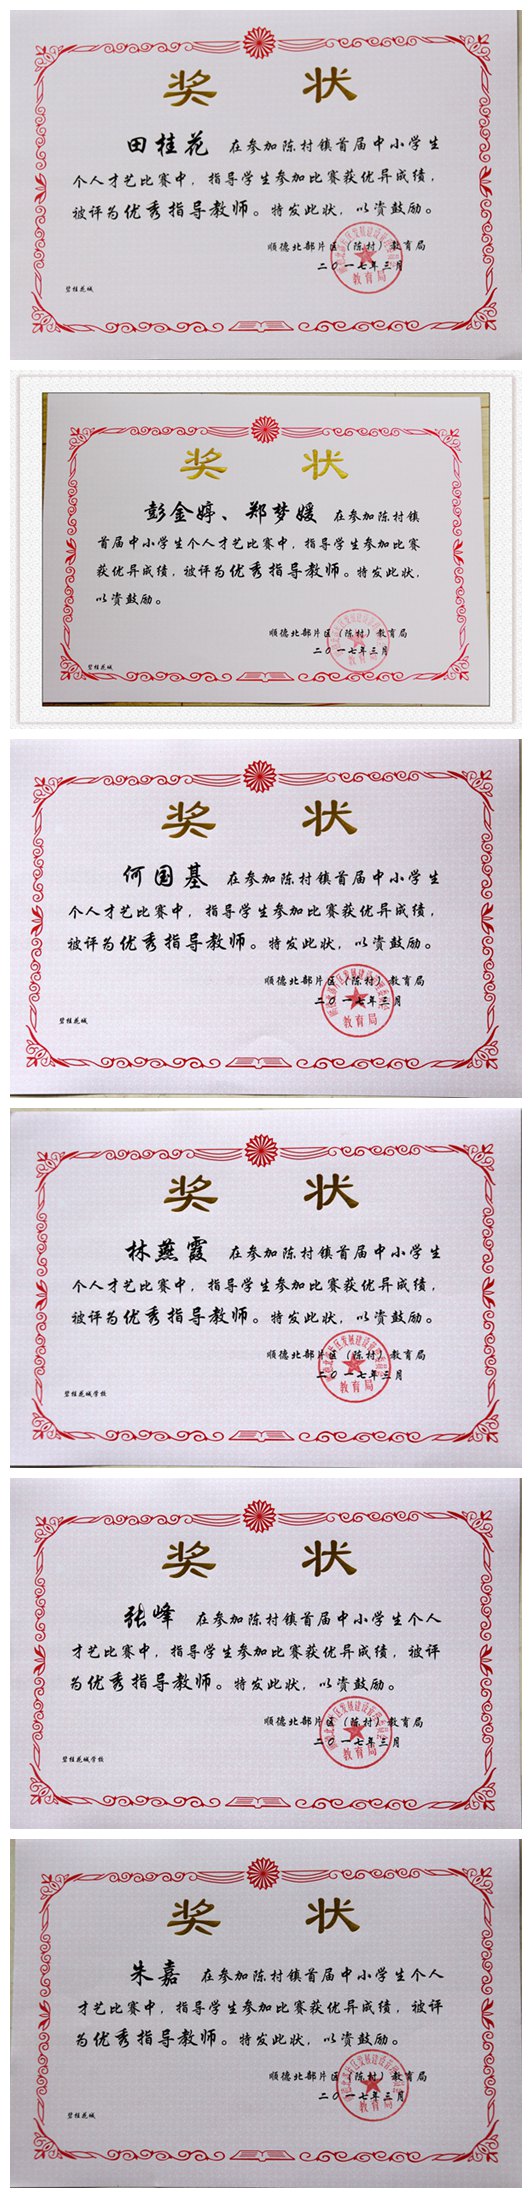 奖 状
田桂花 在参加陈村镇首届中小学生
个人才艺比赛中，指导学生参加比赛获优异成绩，
被评为优秀指导教师。特发此状，以资鼓励。
顺德北部片区（陈村）教育局
二〇一七年三月
教育局
碧桂花城
奖 状
彭金婷、郑梦媛 在参加陈村镇
首届中小学生个人才艺比赛中，指导学生参加比赛
获优异成绩，被评为优秀指导教师。特发此状，
以资鼓励。
顺德北部片区（陈村）教育局
二〇一七年三月
碧桂花城
奖 状
何国基 在参加陈村镇首届中小学生
个人才艺比赛中，指导学生参加比赛获优异成绩，
被评为优秀指导教师。特发此状，以资鼓励。
顺德北部片区（陈村）教育局
二〇一七年三月
教育局
碧桂花城
奖 状
林燕霞 在参加陈村镇首届中小学生
个人才艺比赛中，指导学生参加比赛获优异成绩，
被评为优秀指导教师。特发此状，以资鼓励。
顺德北部片区（陈村）教育局
二〇一七年三月
教育局
碧桂花城学校
奖 状
张峰 在参加陈村镇首届中小学生个人
才艺比赛中，指导学生参加比赛获优异成绩，被评
为优秀指导教师。特发此状，以资鼓励。
顺德北部片区（陈村）教育局
二〇一七年三月
教育局
碧桂花城学校
奖 状
朱嘉 在参加陈村镇首届中小学生个人
才艺比赛中，指导学生参加比赛获优异成绩，被评
为优秀指导教师。特发此状，以资鼓励。
顺德北部片区（陈村）教育局
二〇一七年三月
教育局
碧桂花城